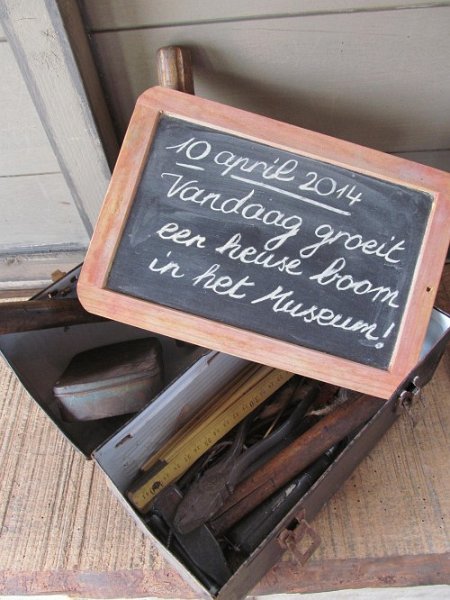 10 april 2014
Vandaag groeit
een heuse boom
in het Museum!